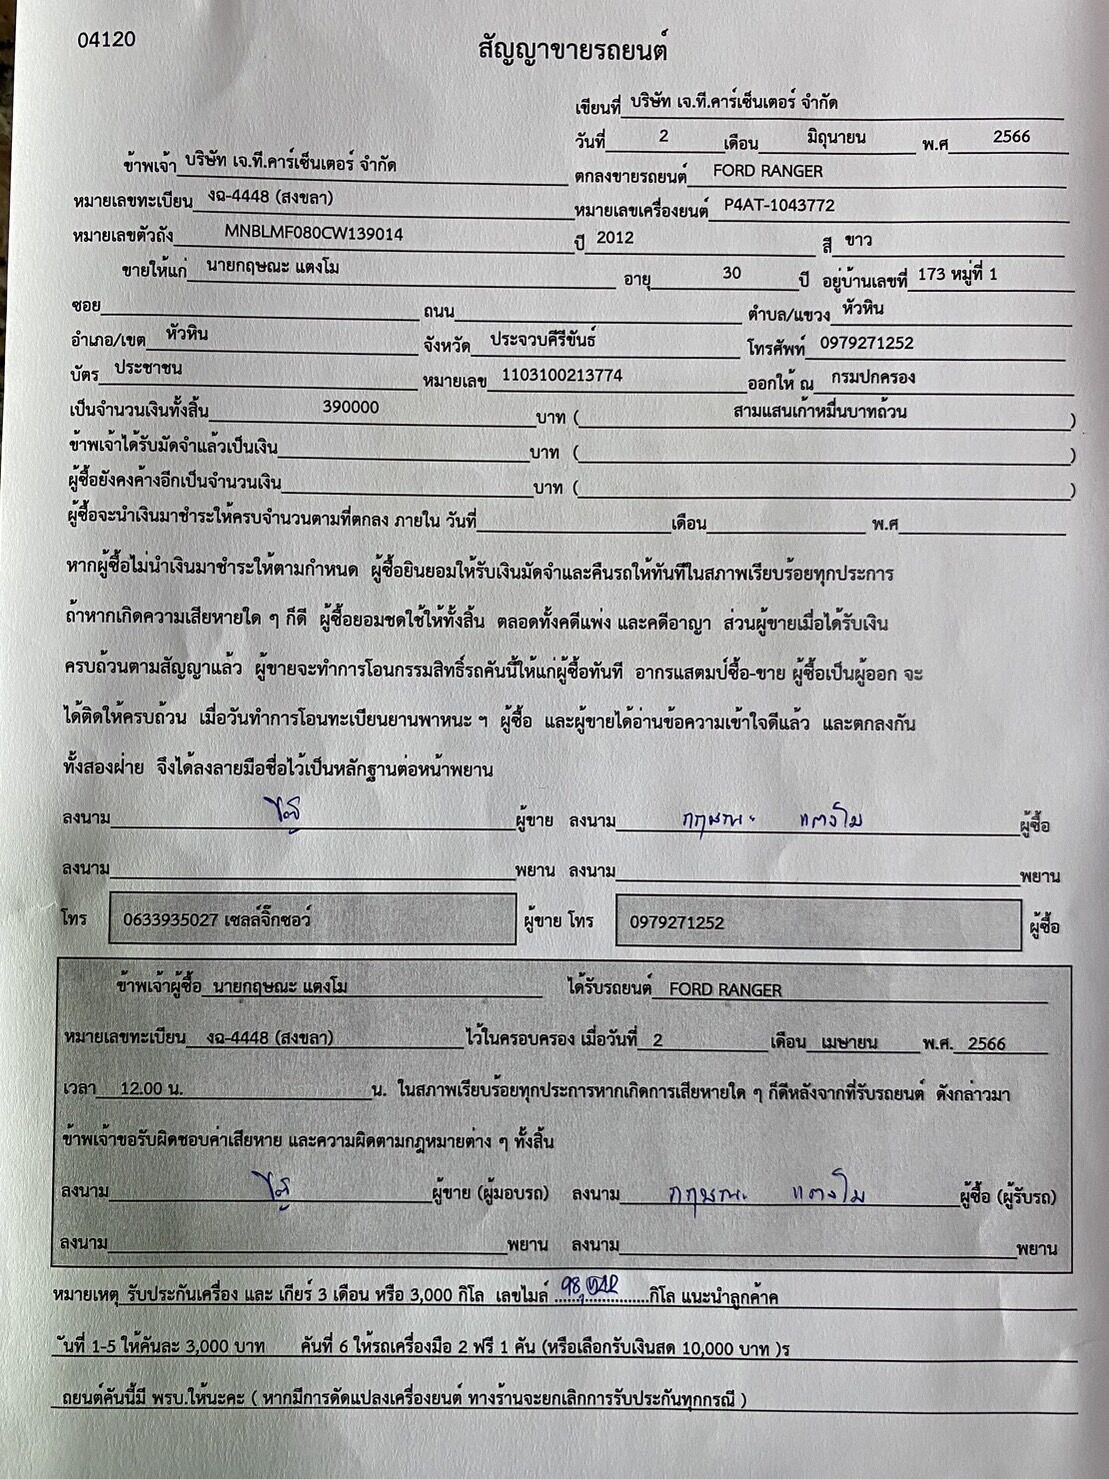 04120
สัญญาขายรถยนต์
เขียนที่ บริษัท เจ.ที.คาร์เซ็นเตอร์ จำกัด
วันที่ 2 เดือน มิถุนายน พ.ศ 2566
ข้าพเจ้า บริษัท เจ.ที.คาร์เซ็นเตอร์ จำกัด ตกลงขายรถยนต์ FORD RANGER
หมายเลขทะเบียน งฉ-4448 (สงขลา) หมายเลขเครื่องยนต์ P4AT-1043772
หมายเลขตัวถัง MNBLMF080CW139014 ปี 2012 สี ขาว
ขายให้แก่ นายกฤษณะ แตงโม อายุ 30 ปี อยู่บ้านเลขที่ 173 หมู่ที่ 1
ซอย ถนน ตำบล/แขวง หัวหิน
อำเภอ/เขต หัวหิน จังหวัด ประจวบคีรีขันธ์ โทรศัพท์ 0979271252
บัตร ประชาชน หมายเลข 1103100213774 ออกให้ ณ กรมปกครอง
เป็นจำนวนเงินทั้งสิ้น 390000 บาท ( สามแสนเก้าหมื่นบาทถ้วน )
ข้าพเจ้าได้รับมัดจำแล้วเป็นเงิน บาท ( )
ผู้ซื้อยังคงค้างอีกเป็นจำนวนเงิน บาท ( )
ผู้ซื้อจะนำเงินมาชำระให้ครบจำนวนตามที่ตกลง ภายใน วันที่ เดือน พ.ศ
หากผู้ซื้อไม่นำเงินมาชำระให้ตามกำหนด ผู้ซื้อยินยอมให้รับเงินมัดจำและคืนรถให้ทันทีในสภาพเรียบร้อยทุกประการ
ถ้าหากเกิดความเสียหายใด ๆ ก็ดี ผู้ซื้อยอมชดใช้ให้ทั้งสิ้น ตลอดทั้งคดีแพ่ง และคดีอาญา ส่วนผู้ขายเมื่อได้รับเงิน
ครบถ้วนตามสัญญาแล้ว ผู้ขายจะทำการโอนกรรมสิทธิ์รถคันนี้ให้แก่ผู้ซื้อทันที อากรแสตมป์ซื้อ-ขาย ผู้ซื้อเป็นผู้ออก จะ
ได้ติดให้ครบถ้วน เมื่อวันทำการโอนทะเบียนยานพาหนะ ฯ ผู้ซื้อ และผู้ขายได้อ่านข้อความเข้าใจดีแล้ว และตกลงกัน
ทั้งสองฝ่าย จึงได้ลงลายมือชื่อไว้เป็นหลักฐานต่อหน้าพยาน
ลงนาม ผู้ขาย ลงนาม กฤษณะ แตงโม ผู้ซื้อ
ลงนาม พยาน ลงนาม พยาน
โทร 0633935027 เซลล์จิ๊กซอว์ ผู้ขาย โทร 0979271252 ผู้ซื้อ
ข้าพเจ้าผู้ซื้อ นายกฤษณะ แตงโม ได้รับรถยนต์ FORD RANGER
หมายเลขทะเบียน งฉ-4448 (สงขลา) ไว้ในครอบครอง เมื่อวันที่ 2 เดือน เมษายน พ.ศ. 2566
เวลา 12.00 น. น. ในสภาพเรียบร้อยทุกประการหากเกิดการเสียหายใด ๆ ก็ดีหลังจากที่รับรถยนต์ ดังกล่าวมา
ข้าพเจ้าขอรับผิดชอบค่าเสียหาย และความผิดตามกฎหมายต่าง ๆ ทั้งสิ้น
ลงนาม ผู้ขาย (ผู้มอบรถ) ลงนาม กฤษณะ แตงโม ผู้ซื้อ (ผู้รับรถ)
ลงนาม พยาน ลงนาม พยาน
หมายเหตุ รับประกันเครื่อง และ เกียร์ 3 เดือน หรือ 3,000 กิโล เลขไมล์ กิโล แนะนำลูกค้าค
ันที่ 1-5 ให้คันละ 3,000 บาท คันที่ 6 ให้รถเครื่องมือ 2 ฟรี 1 คัน (หรือเลือกรับเงินสด 10,000 บาท )ร
ถยนต์คันนี้มี พรบ.ให้นะคะ ( หากมีการดัดแปลงเครื่องยนต์ ทางร้านจะยกเลิกการรับประกันทุกกรณี )